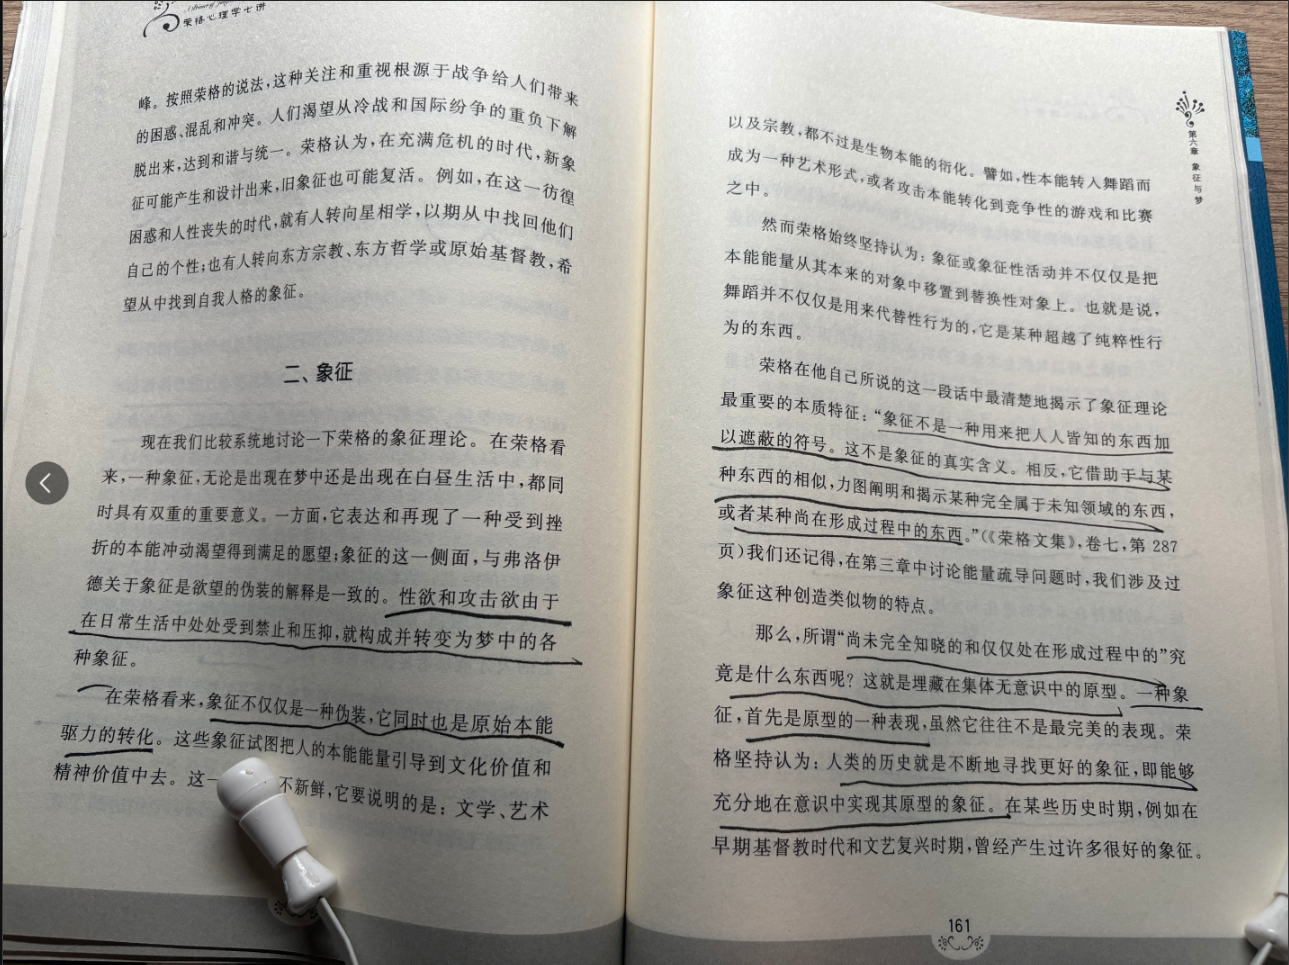 荣格心理学七讲
峰。按照荣格的说法,这种关注和重视根源于战争给人们带来
的困惑、混乱和冲突。人们渴望从冷战和国际纷争的重负下解
脱出来,达到和谐与统一。荣格认为,在充满危机的时代,新象
征可能产生和设计出来,旧象征也可能复活。例如,在这一彷徨
困惑和人性丧失的时代,就有人转向星相学,以期从中找回他们
自己的个性;也有人转向东方宗教、东方哲学或原始基督教,希
望从中找到自我人格的象征。
二、象征
现在我们比较系统地讨论一下荣格的象征理论。在荣格看
来,一种象征,无论是出现在梦中还是出现在白昼生活中,都同
时具有双重的重要意义。一方面,它表达和再现了一种受到挫
折的本能冲动渴望得到满足的愿望;象征的这一侧面,与弗洛伊
德关于象征是欲望的伪装的解释是一致的。性欲和攻击欲由于
在日常生活中处处受到禁止和压抑,就构成并转变为梦中的各
种象征。
在荣格看来,象征不仅仅是一种伪装,它同时也是原始本能
驱力的转化。这些象征试图把人的本能能量引导到文化价值和
精神价值中去。这一 不新鲜,它要说明的是:文学、艺术
第六章 象征与梦
以及宗教,都不过是生物本能的衍化。譬如,性本能转入舞蹈而
成为一种艺术形式,或者攻击本能转化到竞争性的游戏和比赛
之中。
然而荣格始终坚持认为:象征或象征性活动并不仅仅是把
本能能量从其本来的对象中移置到替换性对象上。也就是说,
舞蹈并不仅仅是用来代替性行为的,它是某种超越了纯粹性行
为的东西。
荣格在他自己所说的这一段话中最清楚地揭示了象征理论
最重要的本质特征:“象征不是一种用来把人人皆知的东西加
以遮蔽的符号。这不是象征的真实含义。相反,它借助于与某
种东西的相似,力图阐明和揭示某种完全属于未知领域的东西,
或者某种尚在形成过程中的东西。”(《荣格文集》,卷七,第 287
页)我们还记得,在第三章中讨论能量疏导问题时,我们涉及过
象征这种创造类似物的特点。
那么,所谓“尚未完全知晓的和仅仅处在形成过程中的”究
竟是什么东西呢?这就是埋藏在集体无意识中的原型。一种象
征,首先是原型的一种表现,虽然它往往不是最完美的表现。荣
格坚持认为:人类的历史就是不断地寻找更好的象征,即能够
充分地在意识中实现其原型的象征。在某些历史时期,例如在
早期基督教时代和文艺复兴时期,曾经产生过许多很好的象征。
161